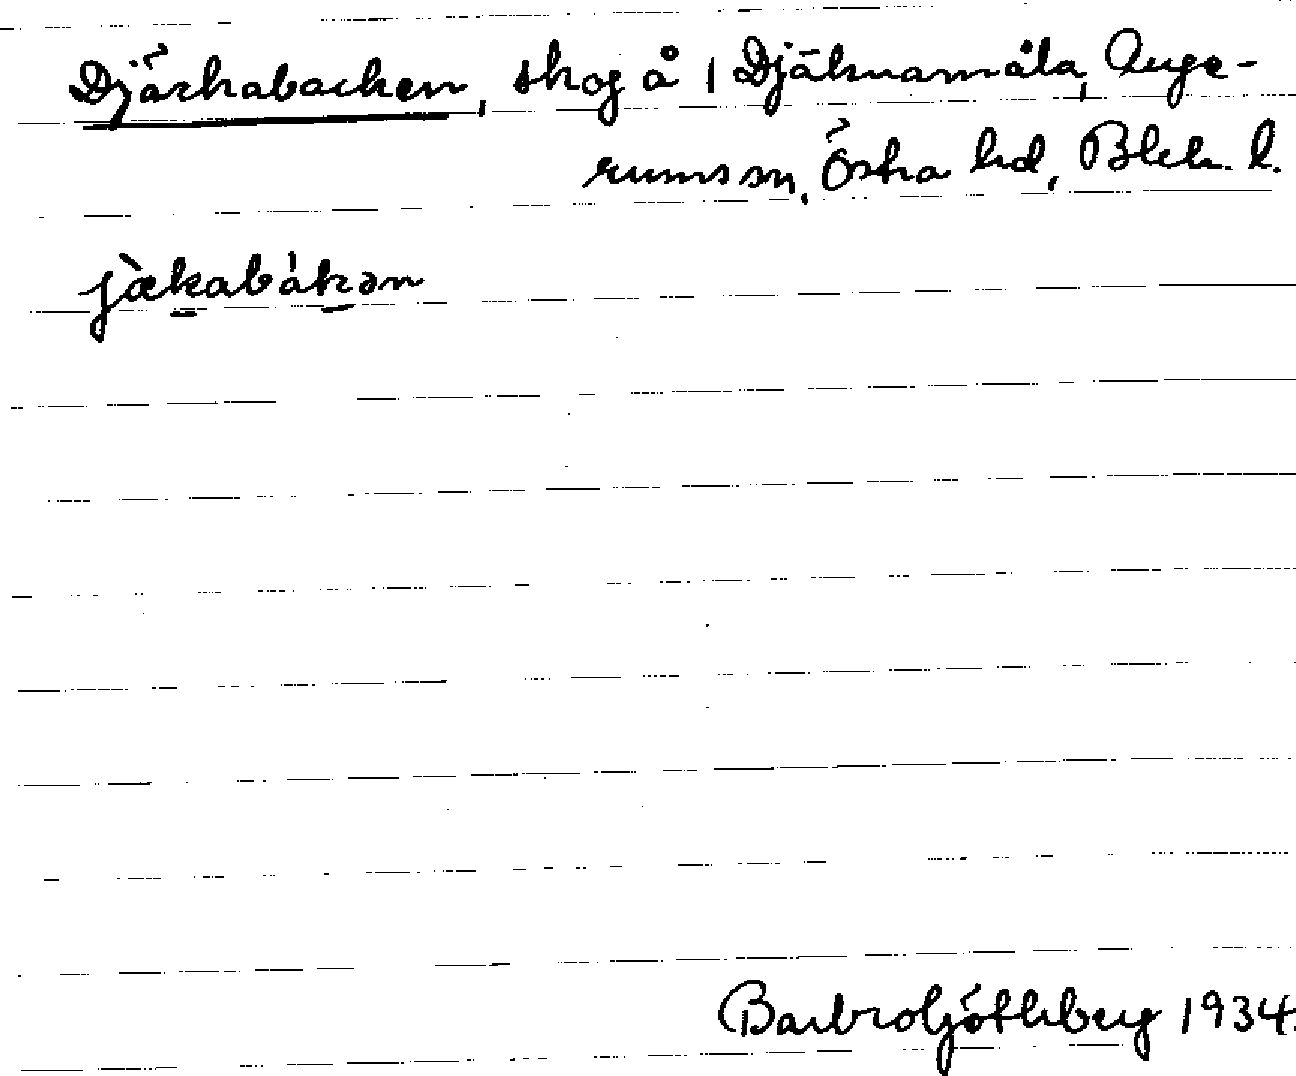 Djäkabacken, skog å 1 Djäknamåla, Auge-
rums sn, Östra hd, Blek. l.
jæ̀kabákən
Barbro Götlberg 1934.